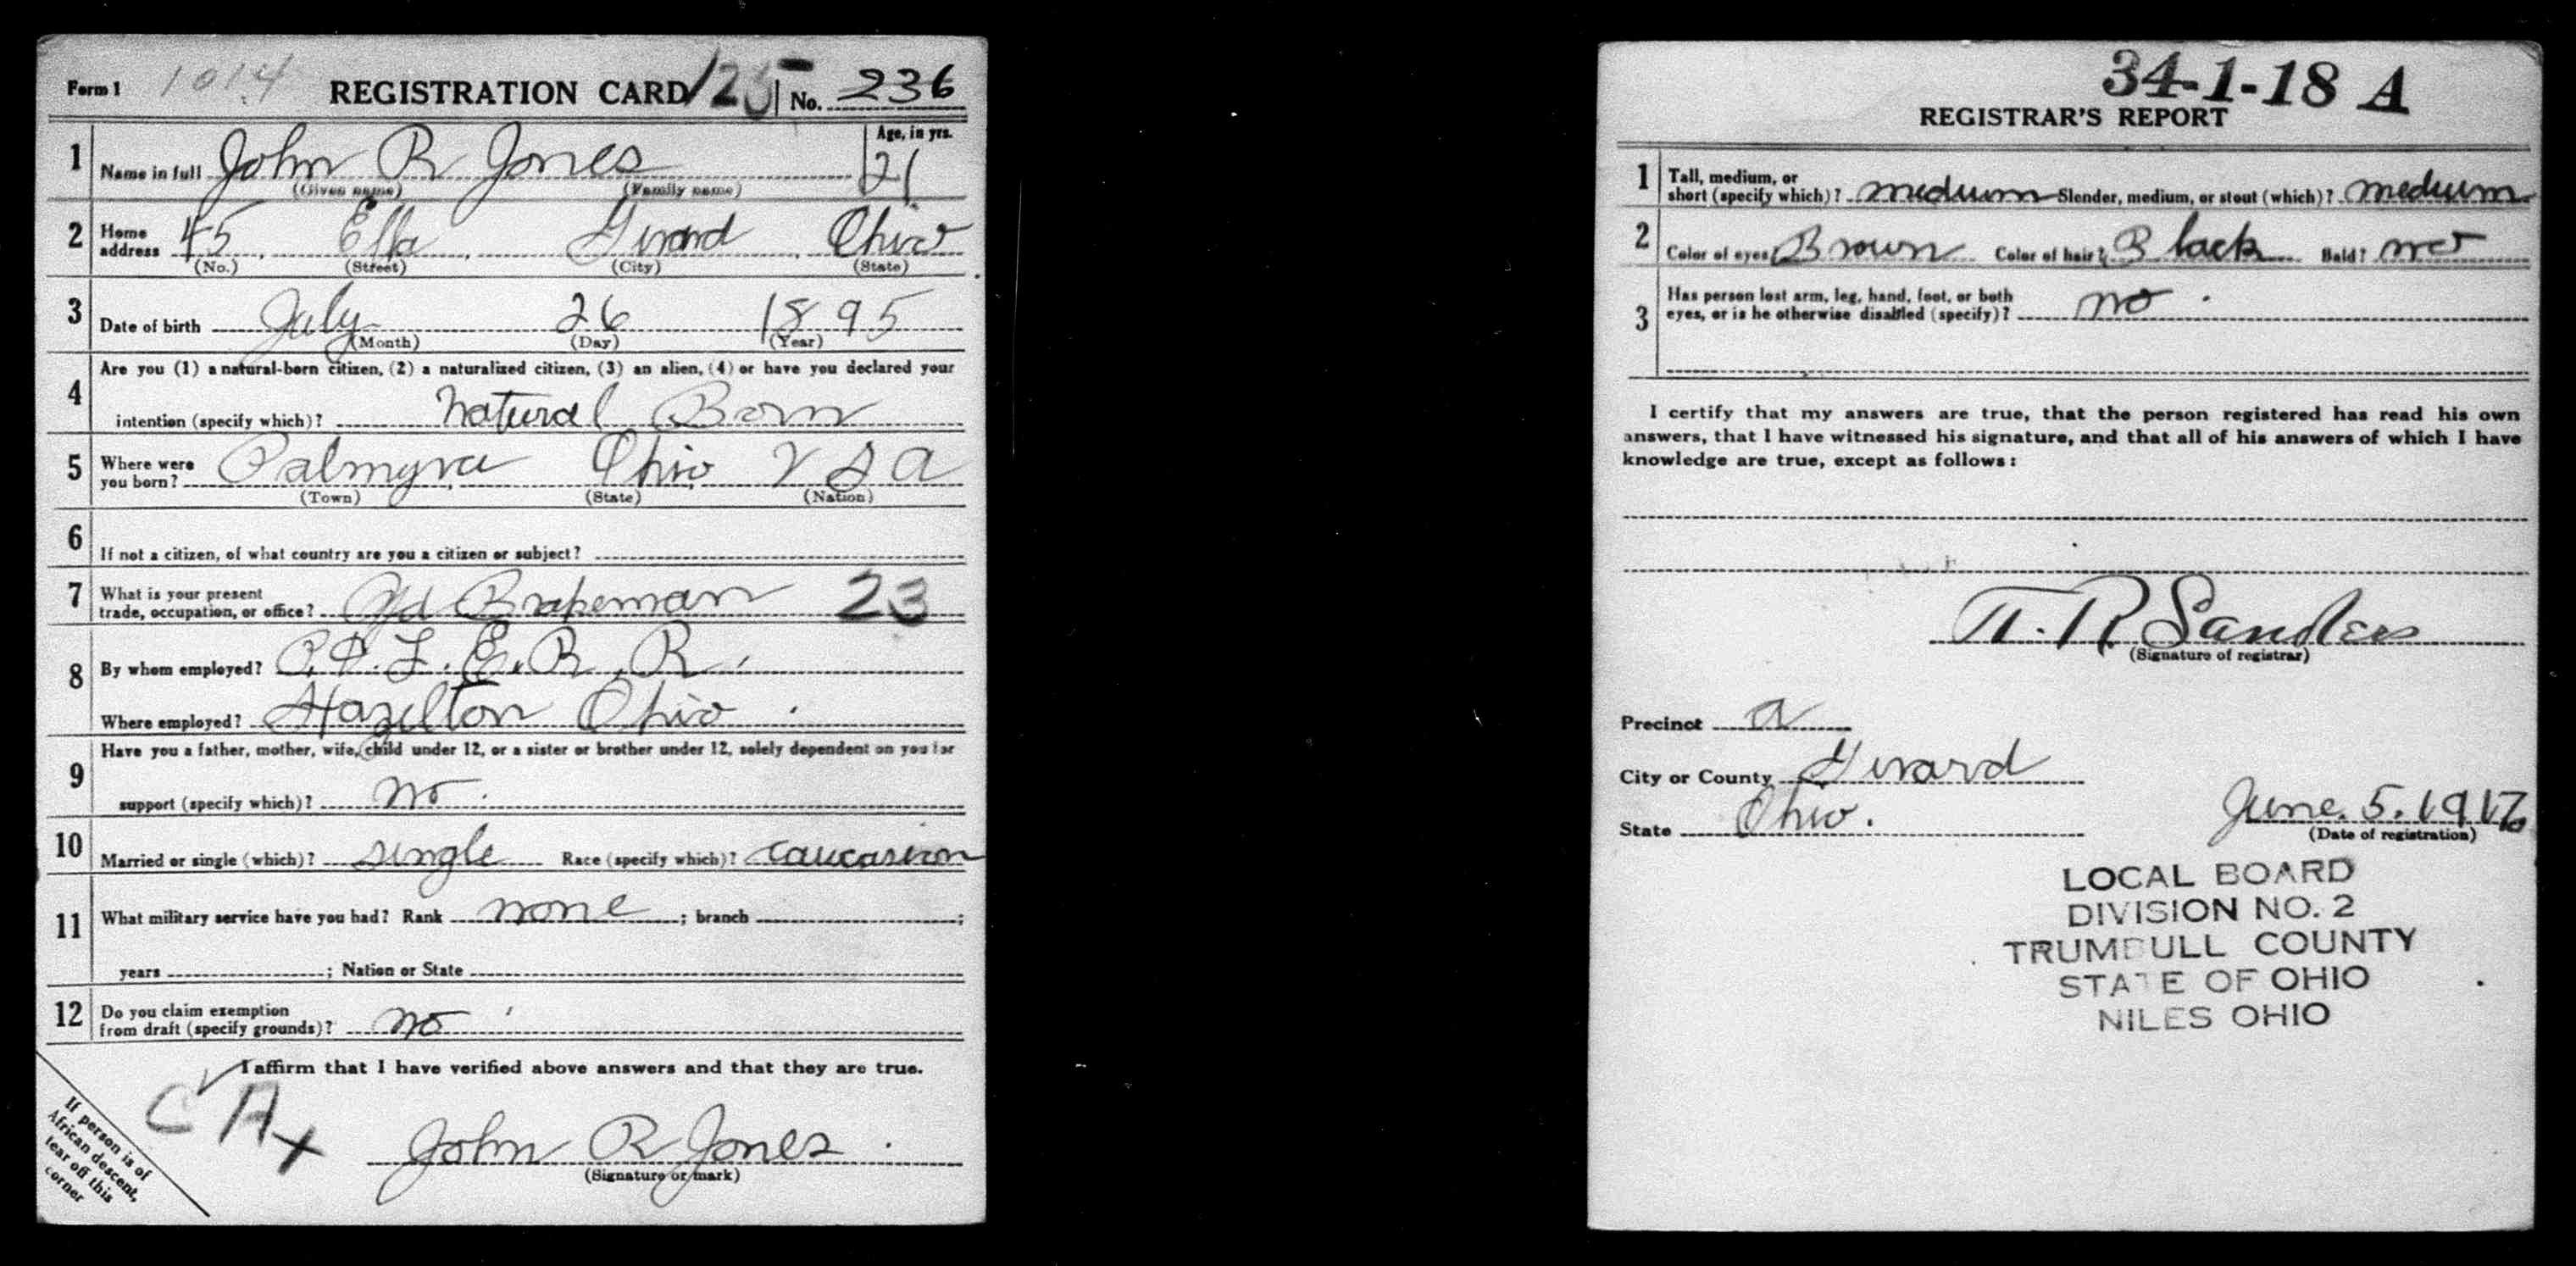 Form 1 1014 REGISTRATION CARD 125 No. 236
1 Name in full John R Jones Age, in yrs. 21
(Given name) (Family name)
2 Home address 45 Ella Girard Ohio
(No.) (Street) (City) (State)
3 Date of birth July 26 1895
(Month) (Day) (Year)
4 Are you (1) a natural-born citizen, (2) a naturalized citizen, (3) an alien, (4) or have you declared your
intention (specify which)? Natural Born
5 Where were you born? Palmyra Ohio U S A
(Town) (State) (Nation)
6 If not a citizen, of what country are you a citizen or subject?
7 What is your present
trade, occupation, or office? Yd Brakeman 23
8 By whom employed? P. & L. E. R. R.
Where employed? Hazelton Ohio
9 Have you a father, mother, wife, child under 12, or a sister or brother under 12, solely dependent on you for
support (specify which)? no
10 Married or single (which)? single Race (specify which)? caucasion
11 What military service have you had? Rank none ; branch ;
years ; Nation or State
12 Do you claim exemption
from draft (specify grounds)? no
I affirm that I have verified above answers and that they are true.
C A x
John R Jones
(Signature or mark)
If person is of
African descent,
tear off this
corner
34-1-18 A
REGISTRAR'S REPORT
1 Tall, medium, or
short (specify which)? medium Slender, medium, or stout (which)? medium
2 Color of eyes? Brown Color of hair? Black Bald? no
3 Has person lost arm, leg, hand, foot, or both
eyes, or is he otherwise disabled (specify)? no
I certify that my answers are true, that the person registered has read his own
answers, that I have witnessed his signature, and that all of his answers of which I have
knowledge are true, except as follows:
R Sanders
(Signature of registrar)
Precinct A
City or County Girard
State Ohio.
June. 5. 1917
(Date of registration)
LOCAL BOARD
DIVISION NO. 2
TRUMBULL COUNTY
STATE OF OHIO
NILES OHIO